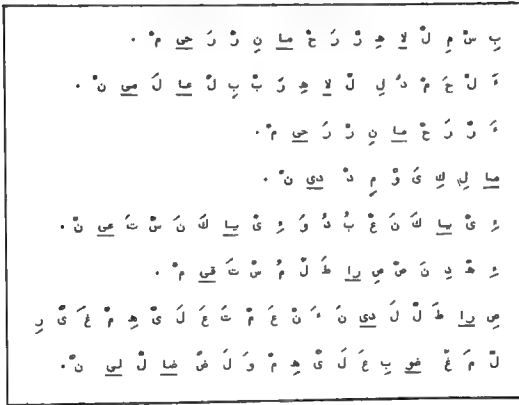 بِ سْ مِ لْ لا هِ رْ رَ حْ ما نِ رْ رَ حي مْ .
ءَ لْ حَ مْ دُ لِ لْ لا هِ رَ بْ بِ لْ عا لَ مي نْ .
ءَ رْ رَ حْ ما نِ رْ رَ حي مْ .
ما لِ كِ يَ وْ مِ دْ دي نْ .
ءِ يْ يا كَ نَ عْ بُ دُ وَ ءِ يْ يا كَ نَ سْ تَ عي نْ .
ءِ هْ دِ نَ صْ صِ را طَ لْ مُ سْ تَ قي مْ .
صِ را طَ لْ لَ دي نَ ءَ نْ عَ مْ تَ عَ لَ يْ هِ مْ غَ يْ رِ
لْ مَ غْ ضو بِ عَ لَ يْ هِ مْ وَ لَ ضْ ضا لْ لي نْ .